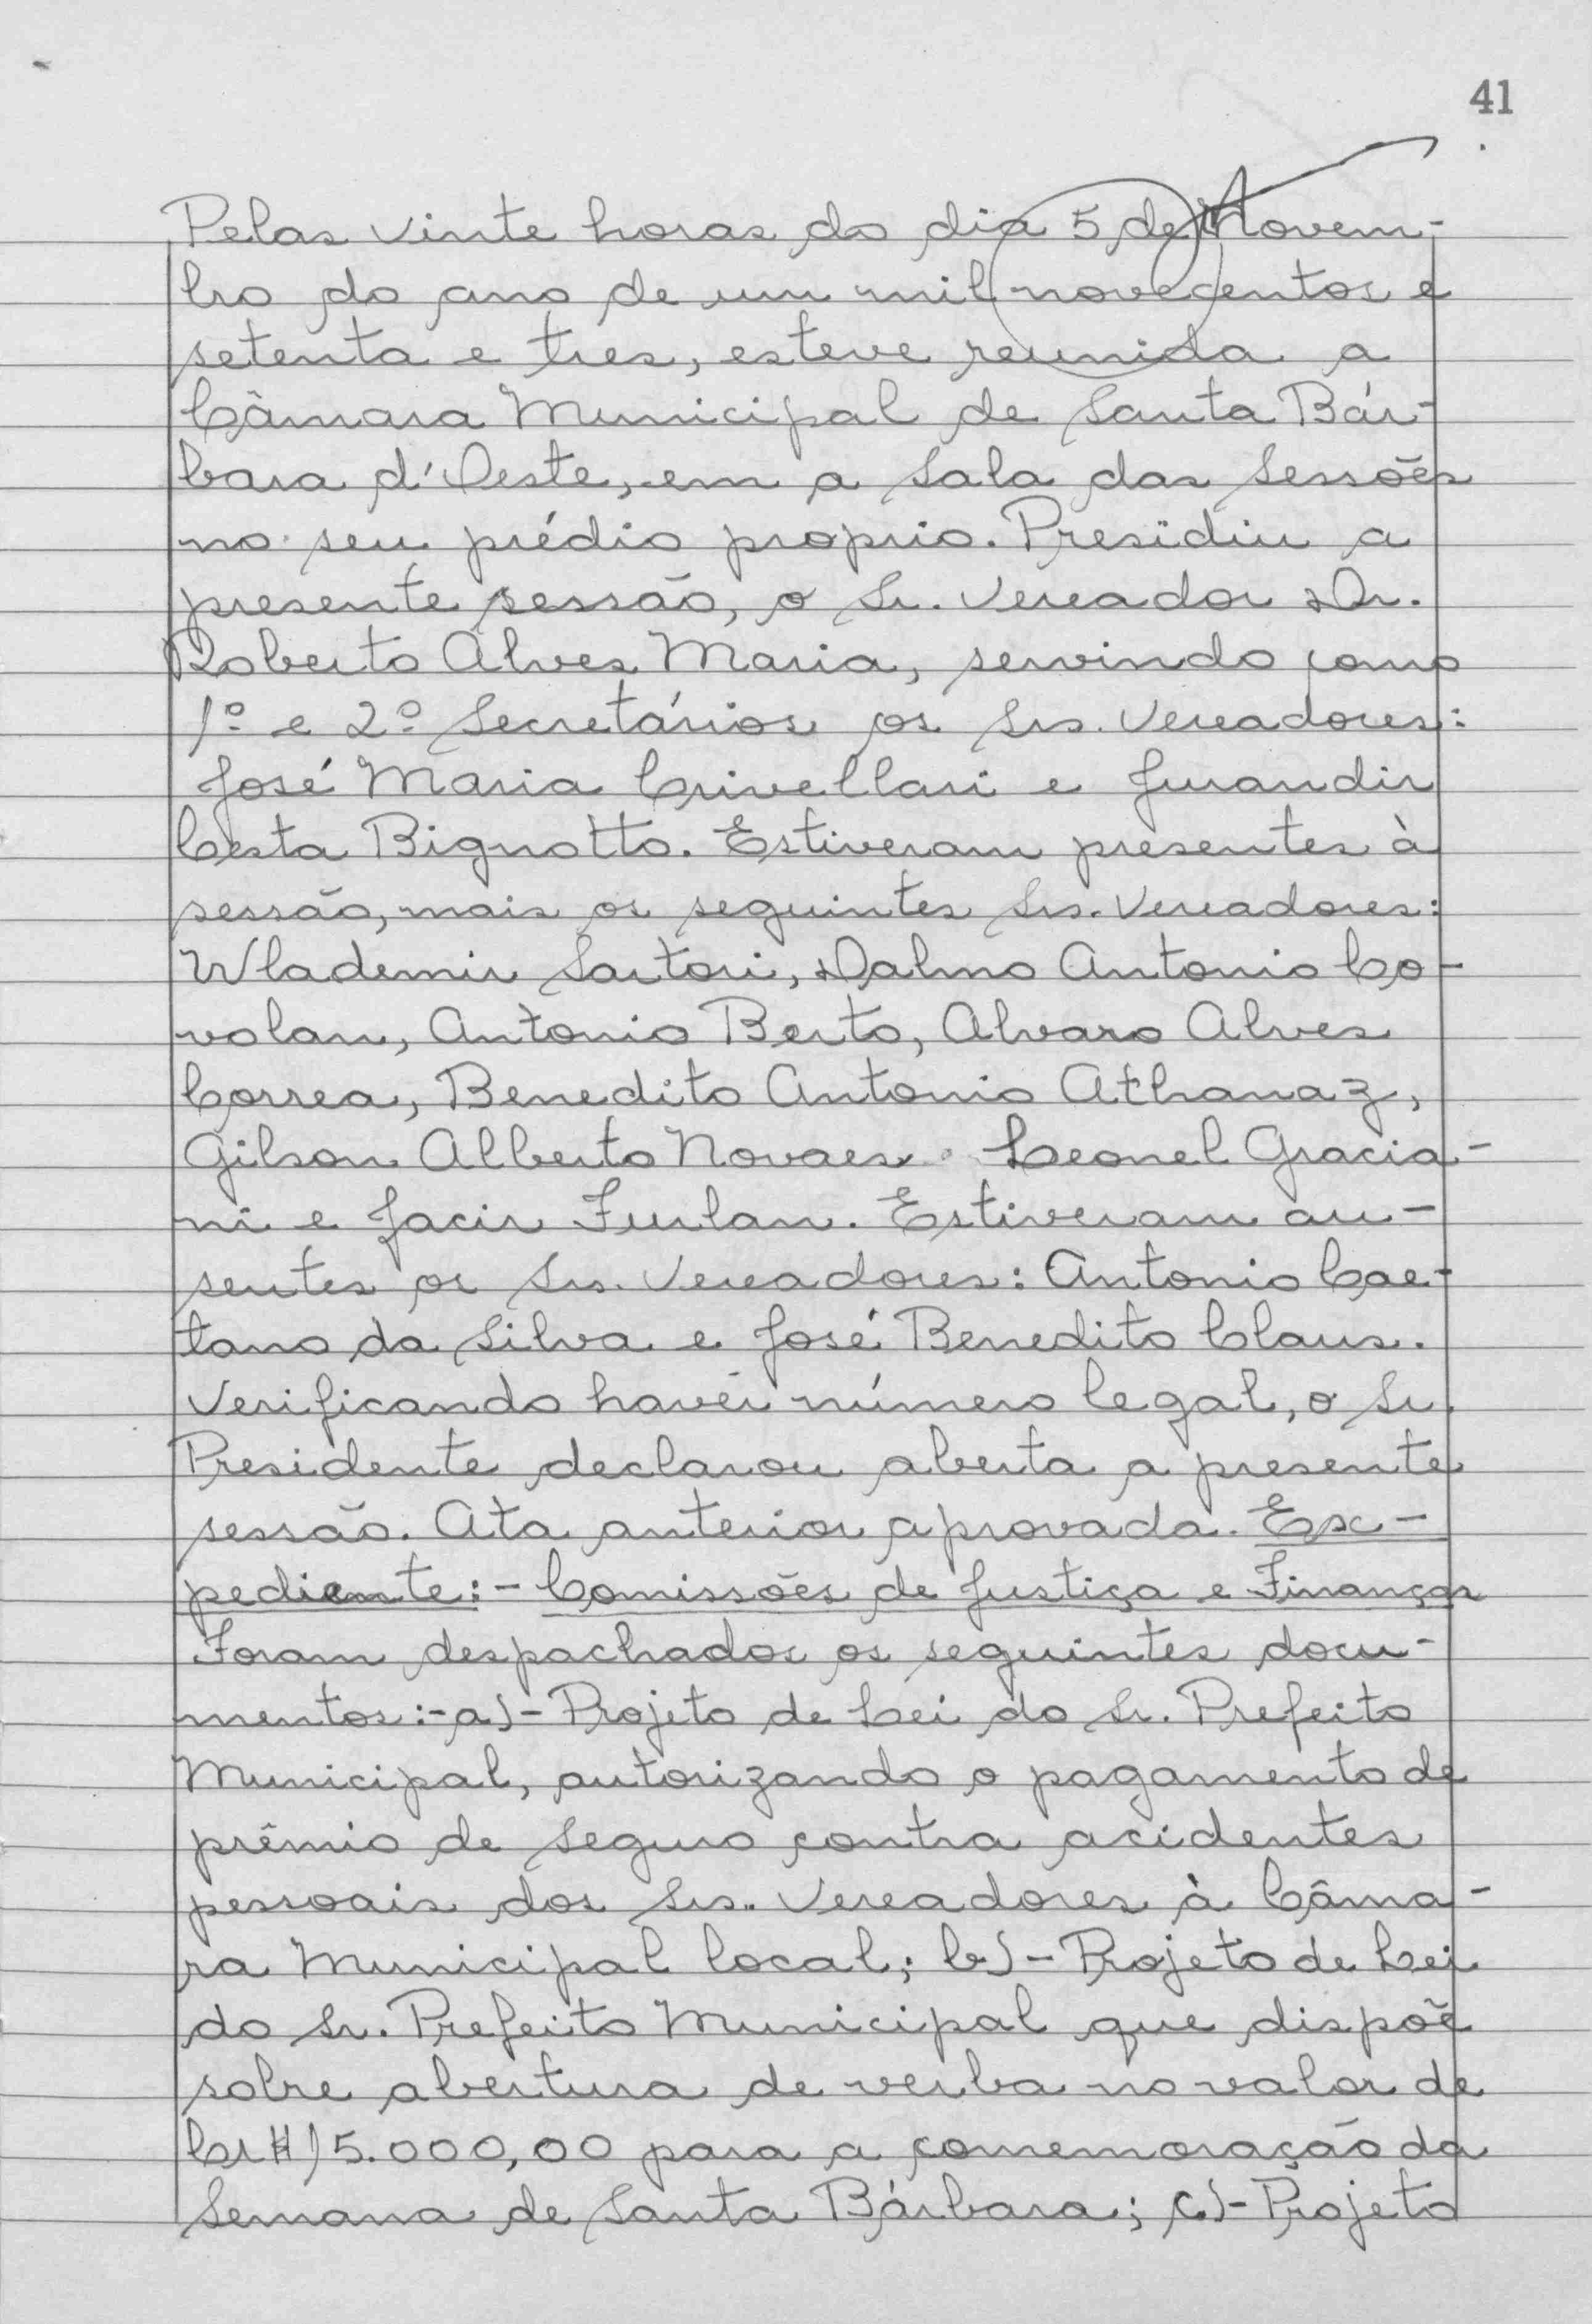 41
Pelas vinte horas do dia 5 de Novem-
bro do ano de um mil novecentos e
setenta e tres, esteve reunida a
Câmara Municipal de Santa Bár-
bara d'Oeste, em a Sala das Sessões
no seu prédio proprio. Presidiu a
presente sessão, o Sr. Vereador Dr.
Roberto Alves Maria, servindo como
1º e 2º Secretários os Srs. Vereadores:
José Maria Crivellari e Jurandir
Cesta Bignotto. Estiveram presentes à
sessão, mais os seguintes Srs. Vereadores:
Wlademir Sartori, Dalmo Antonio Co-
volan, Antonio Berto, Alvaro Alves
Correa, Benedito Antonio Athanaz,
Gilson Alberto Novaes Leonel Gracia-
ni e Jacir Furlan. Estiveram au-
sentes os Srs. Vereadores: Antonio Cae-
tano da Silva e José Benedito Claus.
Verificando havêr número legal, o Sr.
Presidente declarou aberta a presente
sessão. Ata anterior aprovada. Ex-
pediente:- Comissões de Justiça e Finanças
Foram despachados os seguintes docu-
mentos:-a)- Projeto de Lei do Sr. Prefeito
Municipal, autorizando o pagamento de
prêmio de seguro contra acidentes
pessoais dos Srs. Vereadores à Câma-
ra Municipal local; b)- Projeto de Lei
do Sr. Prefeito Municipal que dispõe
sobre abertura de verba no valor de
Cr$15.000,00 para a comemoração da
Semana de Santa Bárbara; c)- Projeto